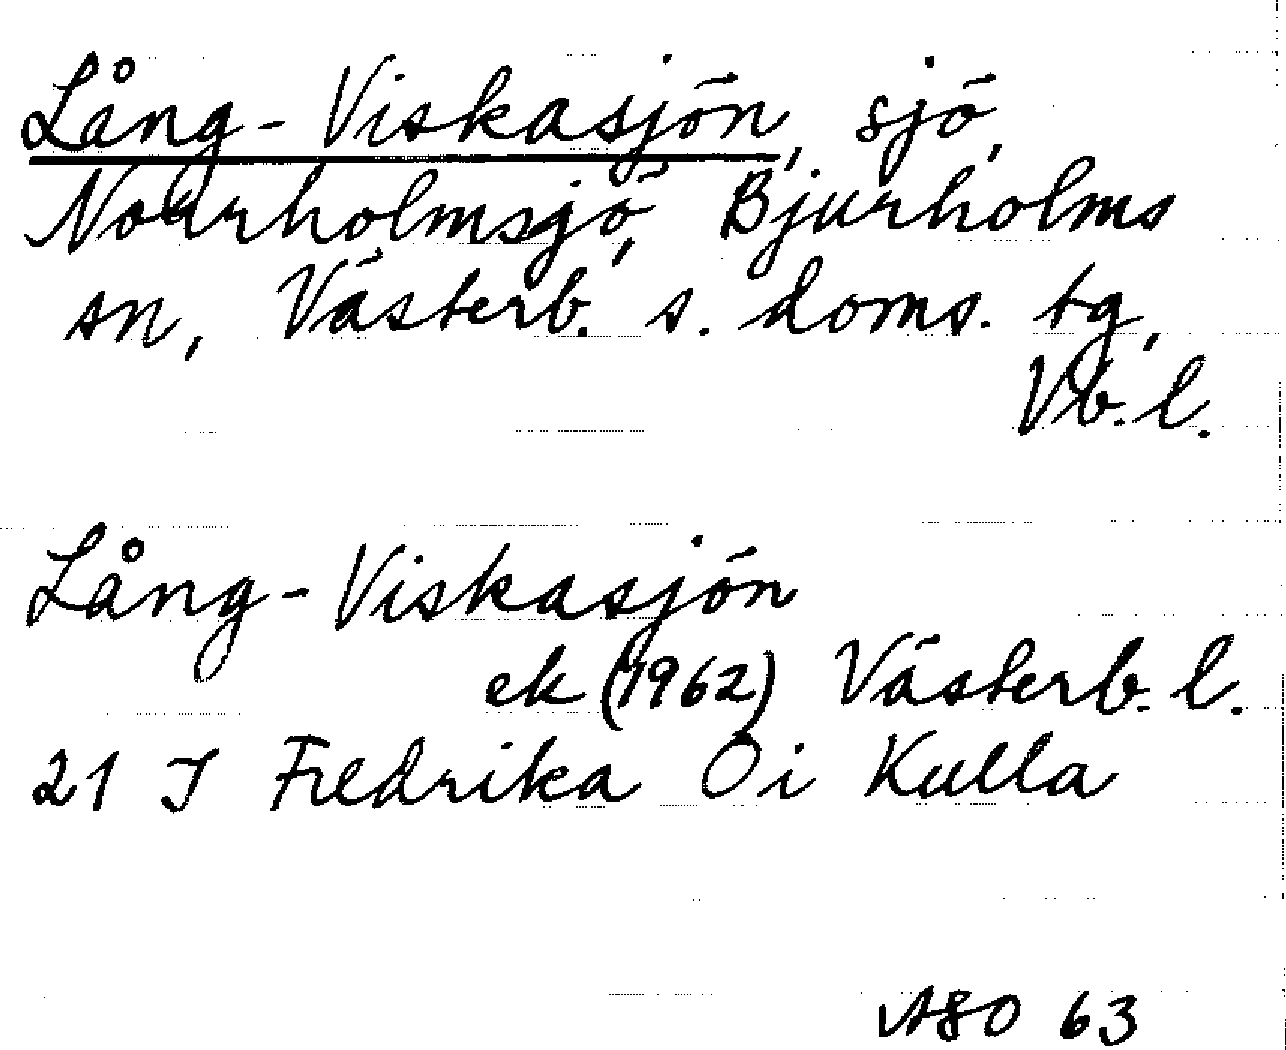 Lång-Viskasjön, sjö,
Norrholmsjö, Bjurholms
sn, Västerb. s. doms. tg,
Vb. l.
Lång-Viskasjön
ek (1962) Västerb. l.
21 J Fredrika Öi Kulla
ASO 63